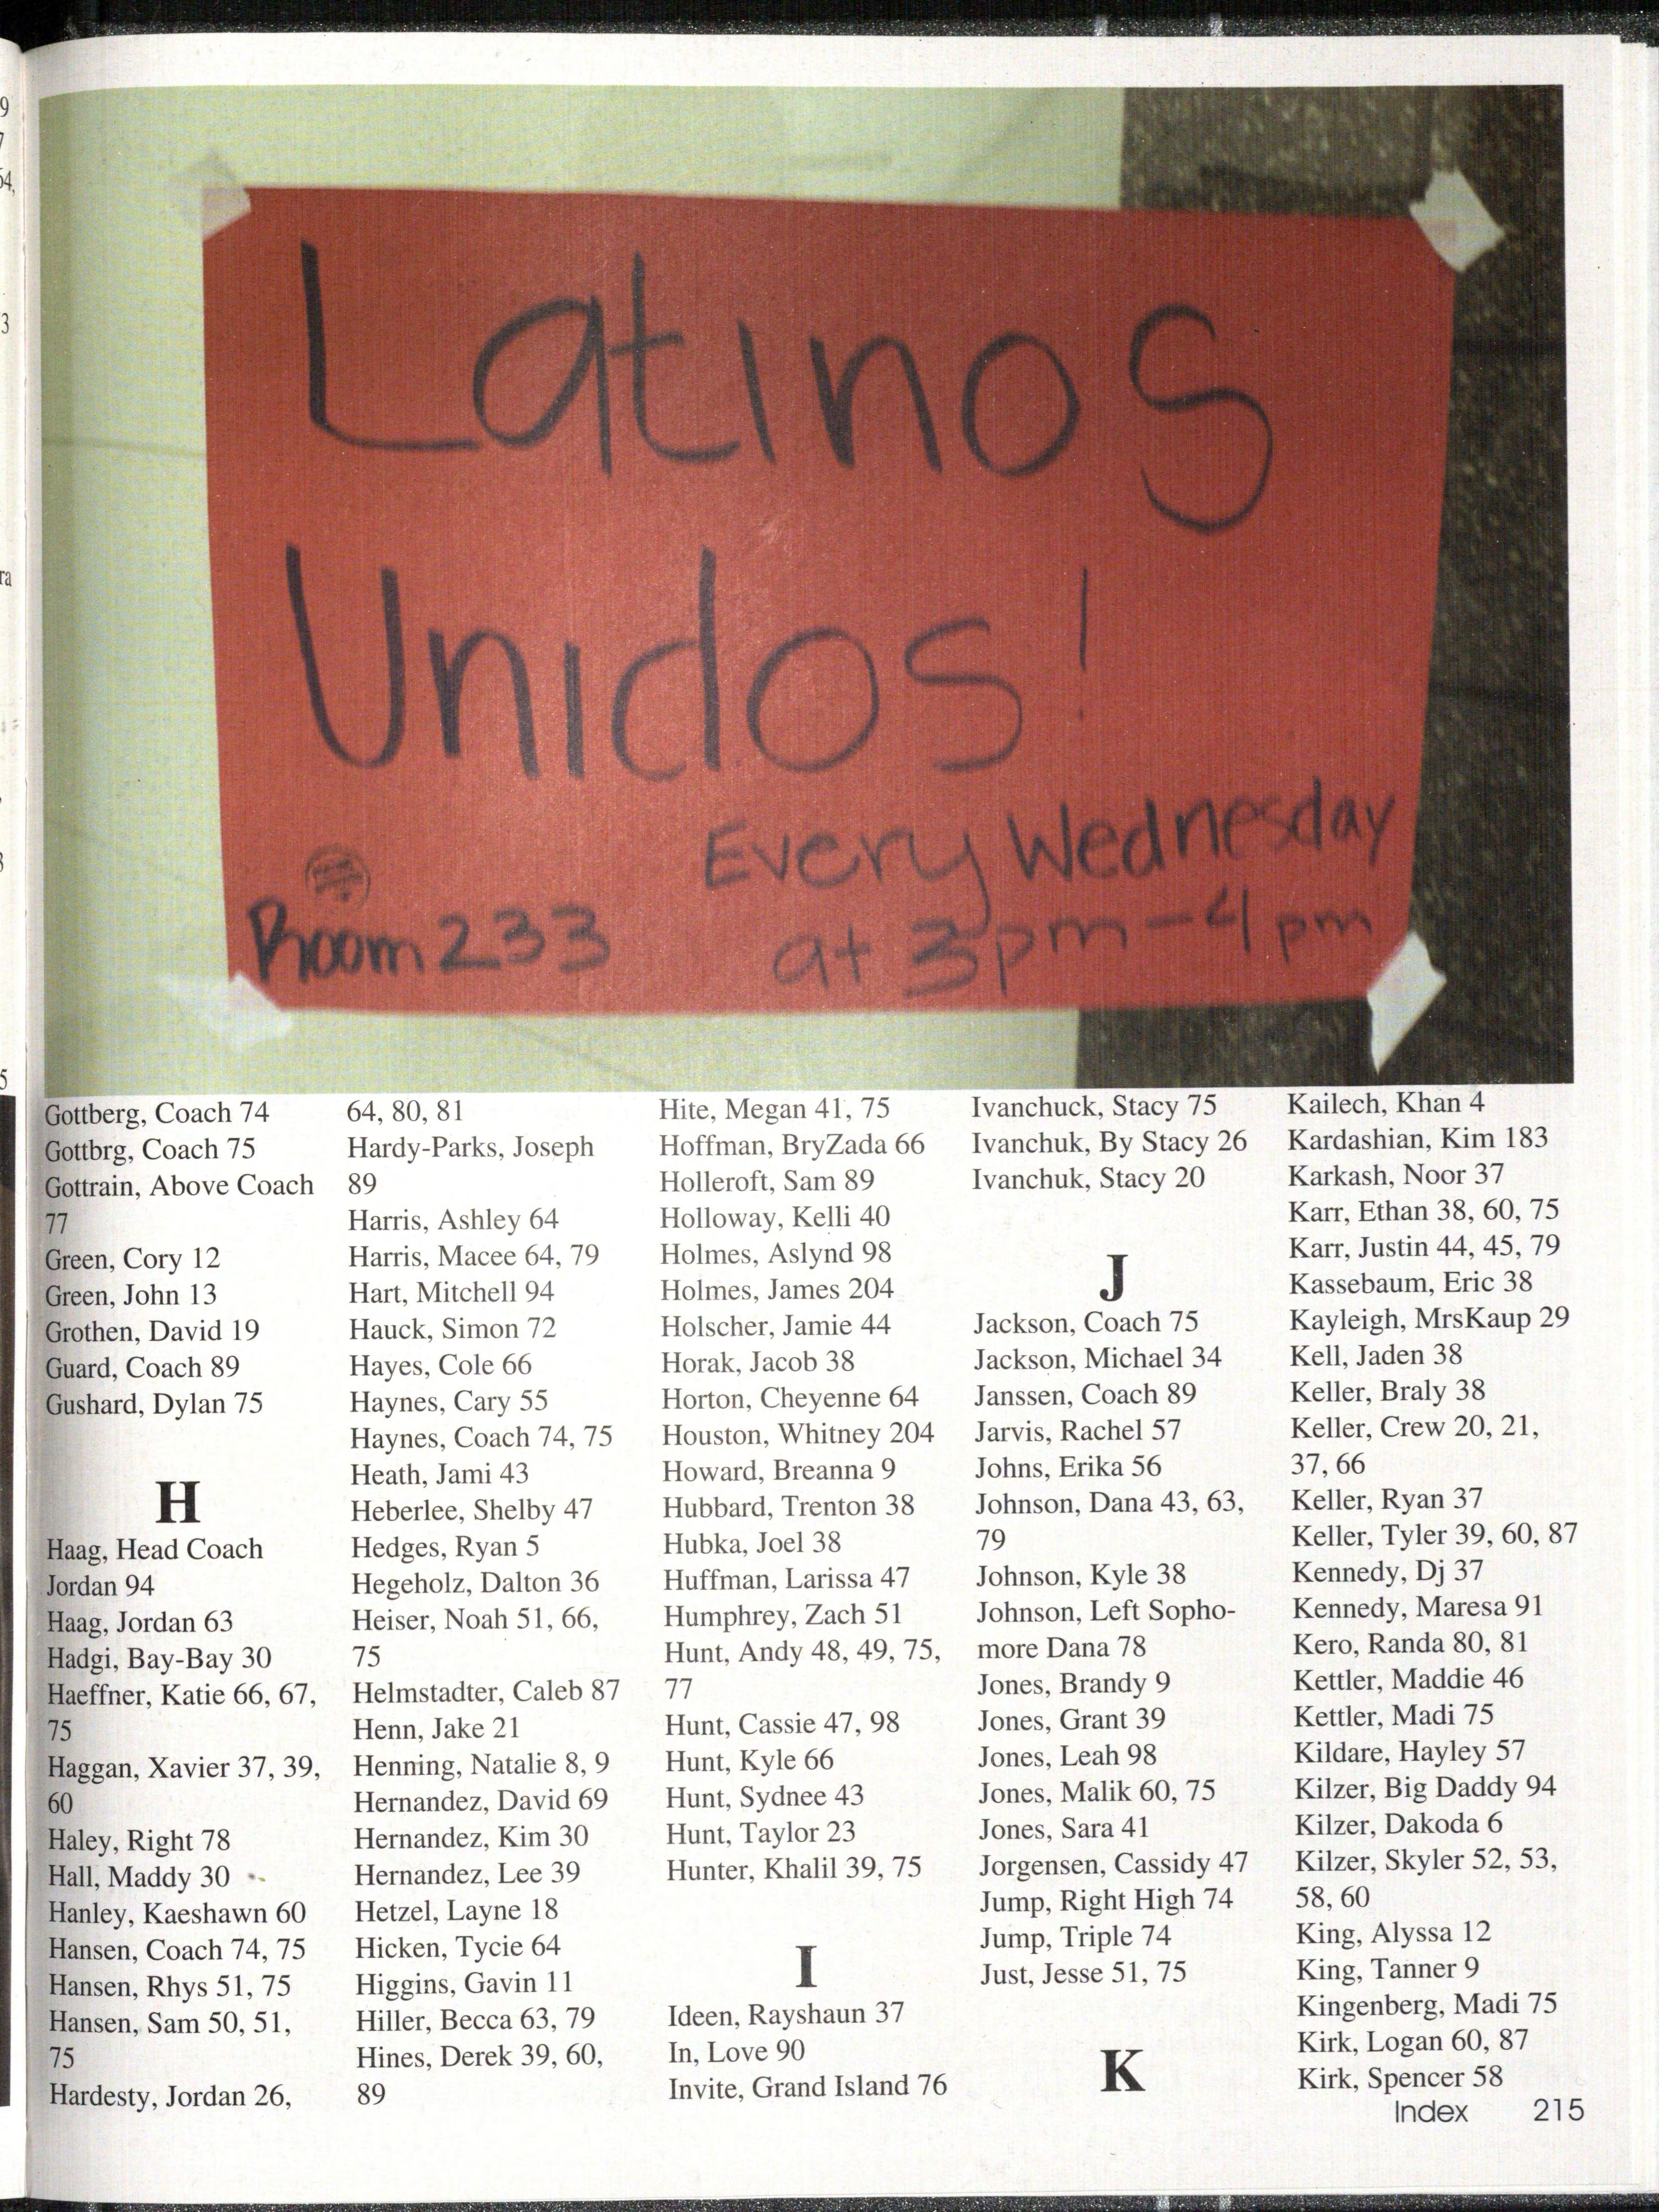 Latinos
Unidos!
Every Wednesday
Room 233
at 3pm-4pm
Gottberg, Coach 74
Gottbrg, Coach 75
Gottrain, Above Coach
77
Green, Cory 12
Green, John 13
Grothen, David 19
Guard, Coach 89
Gushard, Dylan 75
H
Haag, Head Coach
Jordan 94
Haag, Jordan 63
Hadgi, Bay-Bay 30
Haeffner, Katie 66, 67,
75
Haggan, Xavier 37, 39,
60
Haley, Right 78
Hall, Maddy 30
Hanley, Kaeshawn 60
Hansen, Coach 74, 75
Hansen, Rhys 51, 75
Hansen, Sam 50, 51,
75
Hardesty, Jordan 26,
64, 80, 81
Hardy-Parks, Joseph
89
Harris, Ashley 64
Harris, Macee 64, 79
Hart, Mitchell 94
Hauck, Simon 72
Hayes, Cole 66
Haynes, Cary 55
Haynes, Coach 74, 75
Heath, Jami 43
Heberlee, Shelby 47
Hedges, Ryan 5
Hegeholz, Dalton 36
Heiser, Noah 51, 66,
75
Helmstadter, Caleb 87
Henn, Jake 21
Henning, Natalie 8, 9
Hernandez, David 69
Hernandez, Kim 30
Hernandez, Lee 39
Hetzel, Layne 18
Hicken, Tycie 64
Higgins, Gavin 11
Hiller, Becca 63, 79
Hines, Derek 39, 60,
89
Hite, Megan 41, 75
Hoffman, BryZada 66
Holleroft, Sam 89
Holloway, Kelli 40
Holmes, Aslynd 98
Holmes, James 204
Holscher, Jamie 44
Horak, Jacob 38
Horton, Cheyenne 64
Houston, Whitney 204
Howard, Breanna 9
Hubbard, Trenton 38
Hubka, Joel 38
Huffman, Larissa 47
Humphrey, Zach 51
Hunt, Andy 48, 49, 75,
77
Hunt, Cassie 47, 98
Hunt, Kyle 66
Hunt, Sydnee 43
Hunt, Taylor 23
Hunter, Khalil 39, 75
I
Ideen, Rayshaun 37
In, Love 90
Invite, Grand Island 76
Ivanchuck, Stacy 75
Ivanchuk, By Stacy 26
Ivanchuk, Stacy 20
J
Jackson, Coach 75
Jackson, Michael 34
Janssen, Coach 89
Jarvis, Rachel 57
Johns, Erika 56
Johnson, Dana 43, 63,
79
Johnson, Kyle 38
Johnson, Left Sopho-
more Dana 78
Jones, Brandy 9
Jones, Grant 39
Jones, Leah 98
Jones, Malik 60, 75
Jones, Sara 41
Jorgensen, Cassidy 47
Jump, Right High 74
Jump, Triple 74
Just, Jesse 51, 75
K
Kailech, Khan 4
Kardashian, Kim 183
Karkash, Noor 37
Karr, Ethan 38, 60, 75
Karr, Justin 44, 45, 79
Kassebaum, Eric 38
Kayleigh, MrsKaup 29
Kell, Jaden 38
Keller, Braly 38
Keller, Crew 20, 21,
37, 66
Keller, Ryan 37
Keller, Tyler 39, 60, 87
Kennedy, Dj 37
Kennedy, Maresa 91
Kero, Randa 80, 81
Kettler, Maddie 46
Kettler, Madi 75
Kildare, Hayley 57
Kilzer, Big Daddy 94
Kilzer, Dakoda 6
Kilzer, Skyler 52, 53,
58, 60
King, Alyssa 12
King, Tanner 9
Kingenberg, Madi 75
Kirk, Logan 60, 87
Kirk, Spencer 58
Index 215